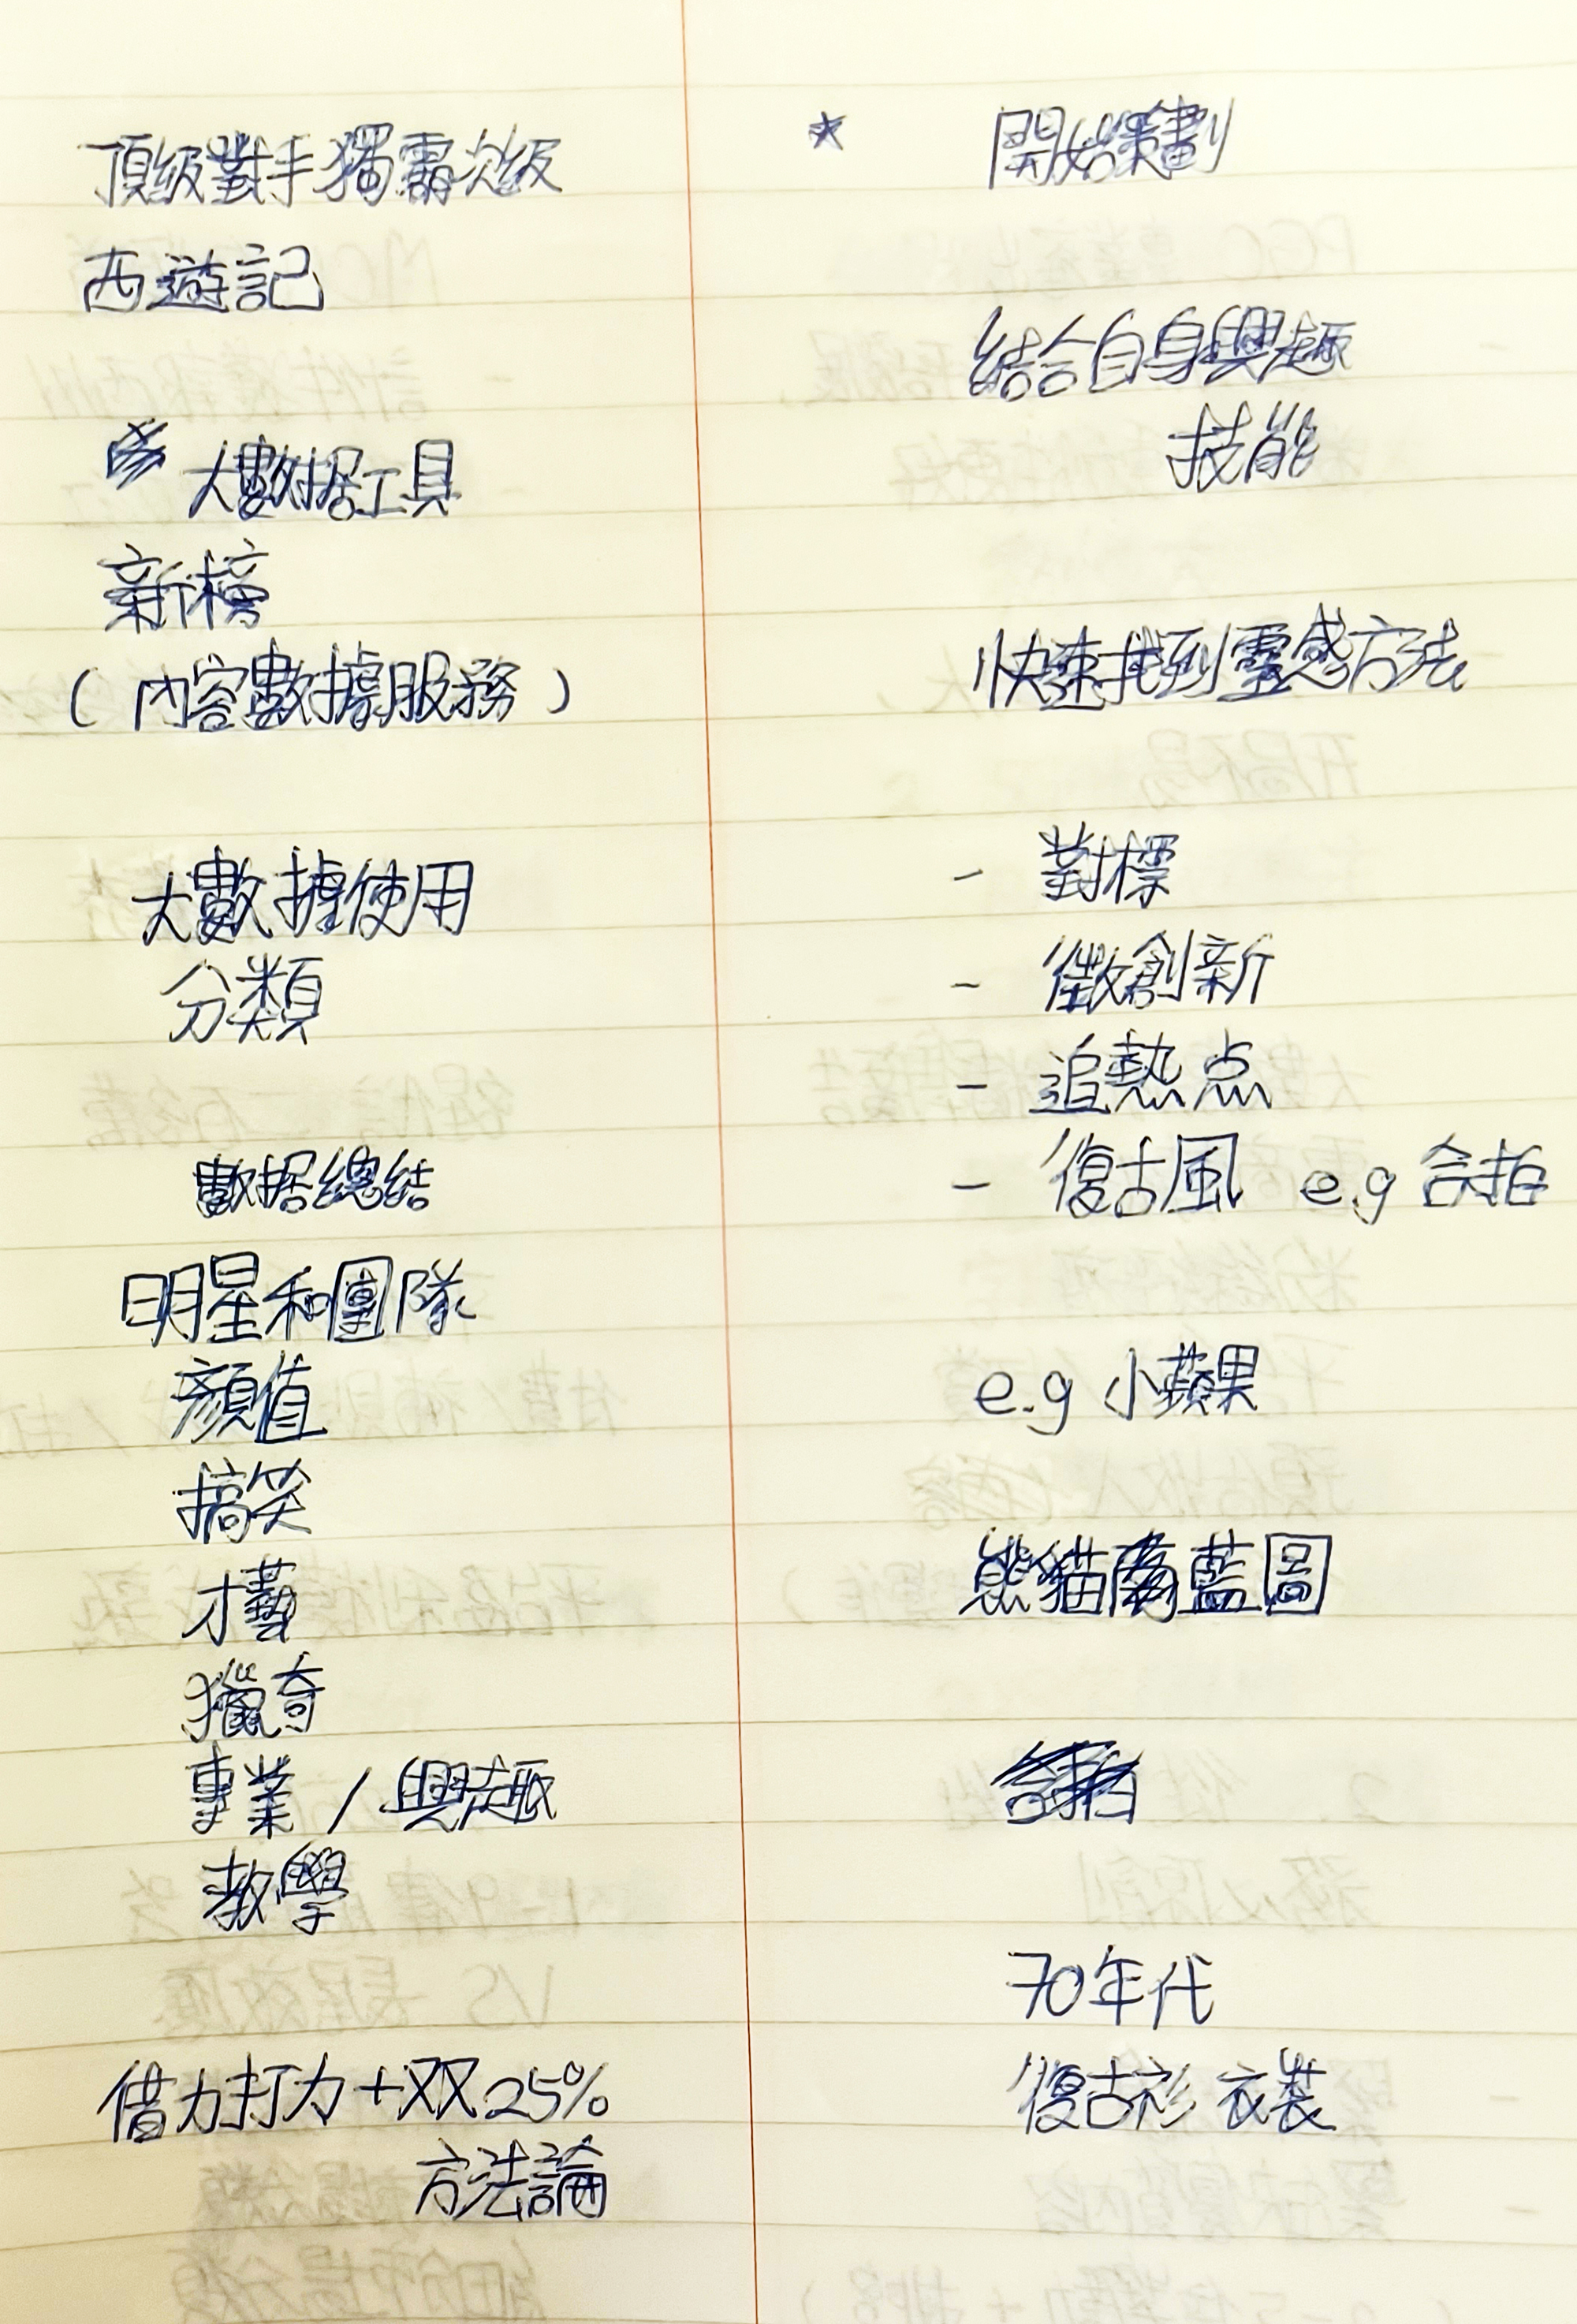 頂級對手獨霸次級
西遊記
大數据工具
新榜
(內容數據服務)
大數據使用
分類
數据總結
明星和團隊
顏值
搞笑
才藝
獵奇
專業 / 興趣
教學
借力打力+双25%
方法論
* 開始策劃
結合自身興趣
技能
快速找到靈感方法
- 對標
- 微創新
- 追熱点
- 復古風 e.g 合拍
e.g 小蘋果
熊貓藍圖
70年代
復古衫 衣裝